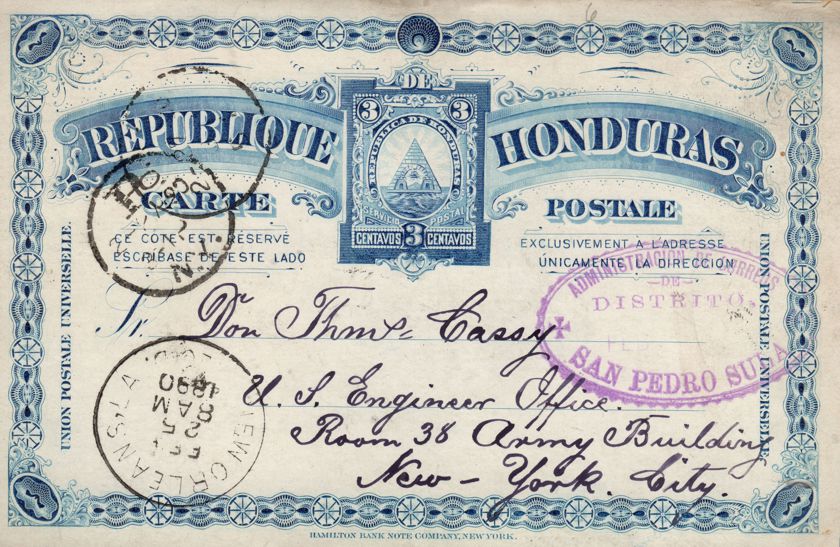 DE
RÉPUBLIQUE HONDURAS
3 3
REPUBLICA DE HONDURAS
SERVICIO POSTAL
CENTAVOS 3 CENTAVOS
CARTE POSTALE
CE CÔTE EST RÉSERVÉ EXCLUSIVEMENT A L'ADRESSE
ESCRIBASE DE ESTE LADO ÚNICAMENTE LA DIRECCION
UNION POSTALE UNIVERSELLE.
UNION POSTALE UNIVERSELLE
ADMINISTRACION DE CORREOS
DE
DISTRITO,
SAN PEDRO SULA
Sr. Don Thms Cassy
U. S. Engineer Office.
Room 38 Army Building
New-York. City.
NEW ORLEANS, LA.
FEB
25
8 AM
1890
N.Y.
3
3
3
3
6
HAMILTON BANK NOTE COMPANY, NEW YORK.